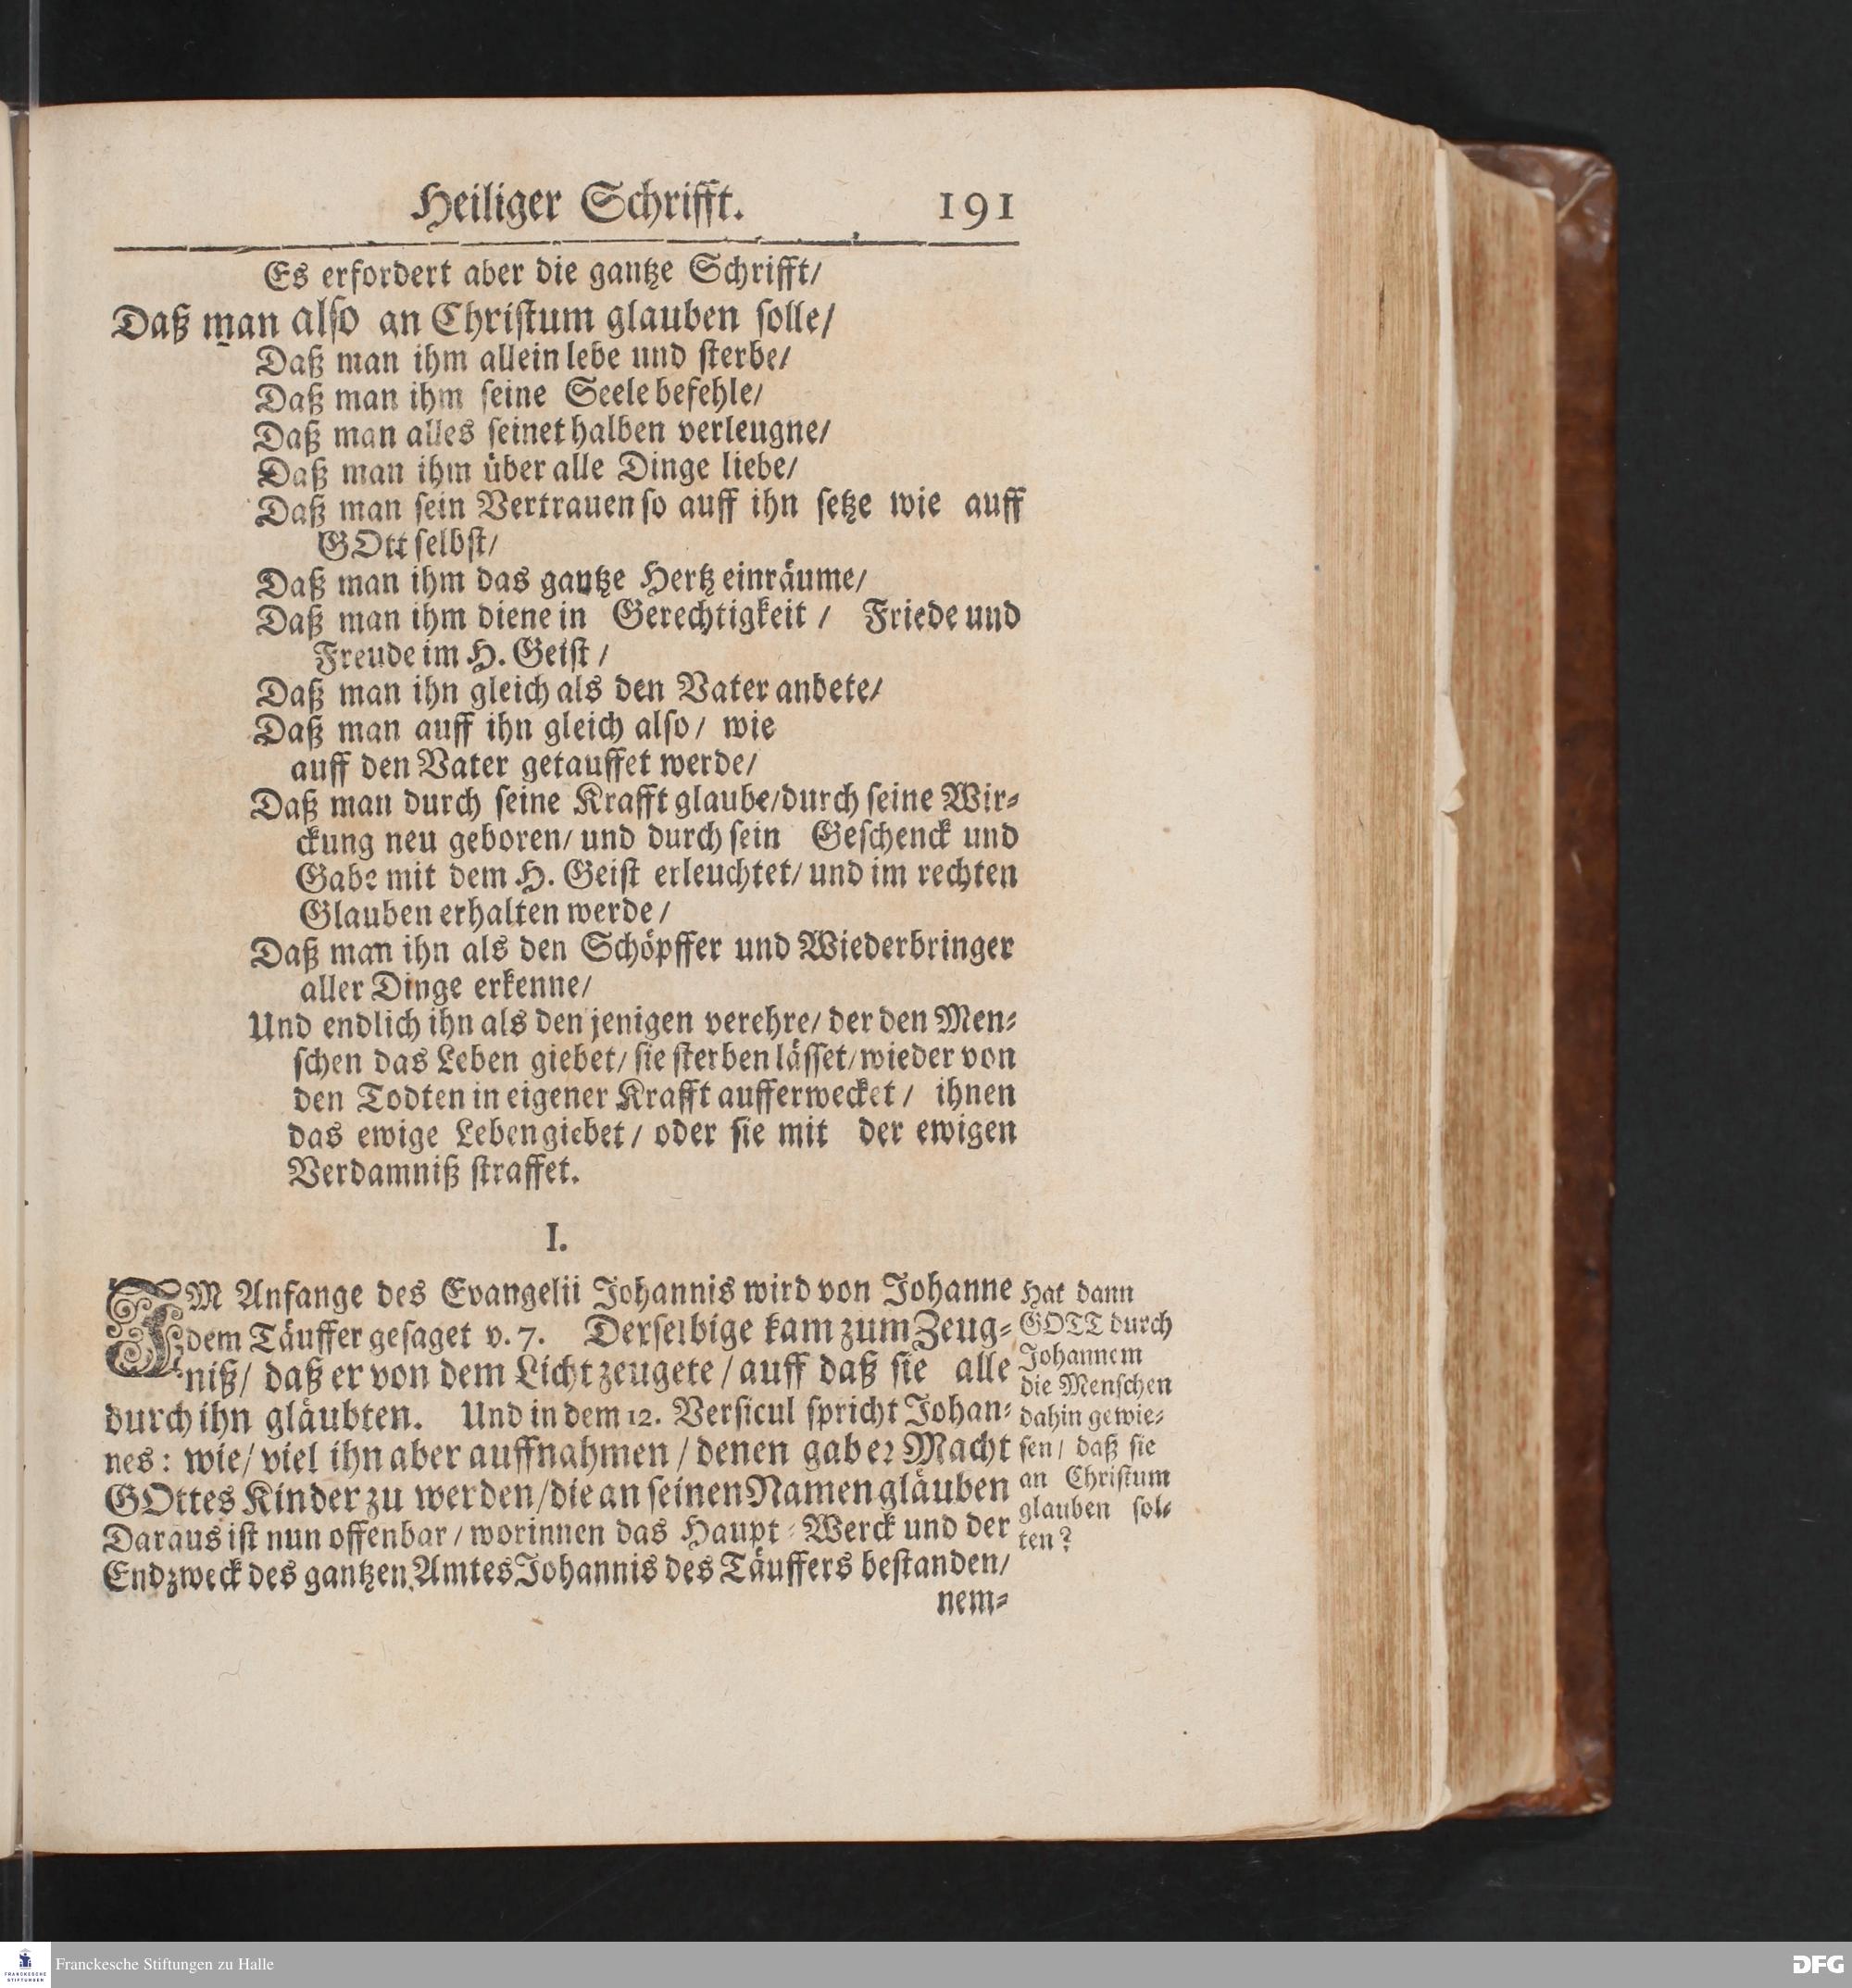 Heiliger Schrifft. 191
Es erfordert aber die gantze Schrifft/
Daß man also an Christum glauben solle/
Daß man ihm allein lebe und sterbe/
Daß man ihm seine Seele befehle/
Daß man alles seinet halben verleugne/
Daß man ihm über alle Dinge liebe/
Daß man sein Vertrauen so auff ihn setze wie auff
GOtt selbst/
Daß man ihm das gantze Hertz einräume/
Daß man ihm diene in Gerechtigkeit / Friede und
Freude im H. Geist /
Daß man ihn gleich als den Vater anbete/
Daß man auff ihn gleich also/ wie
auff den Vater getauffet werde/
Daß man durch seine Krafft glaube/durch seine Wir-
ckung neu geboren/ und durch sein Geschenck und
Gabe mit dem H. Geist erleuchtet/ und im rechten
Glauben erhalten werde /
Daß man ihn als den Schöpffer und Wiederbringer
aller Dinge erkenne/
Und endlich ihn als den jenigen verehre/ der den Men-
schen das Leben giebet/ sie sterben lässet/wieder von
den Todten in eigener Krafft aufferwecket / ihnen
das ewige Leben giebet / oder sie mit der ewigen
Verdamniß straffet.
I.
IM Anfange des Evangelii Johannis wird von Johanne
dem Täuffer gesaget v. 7. Derselbige kam zum Zeug-
niß/ daß er von dem Licht zeugete / auff daß sie alle
durch ihn gläubten. Und in dem 12. Versicul spricht Johan-
nes: wie/ viel ihn aber auffnahmen / denen gab er Macht
GOttes Kinder zu werden/die an seinen Namen gläuben
Daraus ist nun offenbar / worinnen das Haupt-Werck und der
Endzweck des gantzen Amtes Johannis des Täuffers bestanden/
nem-
Hat dann
GOTT durch
Johannem
die Menschen
dahin gewie-
sen/ daß sie
an Christum
glauben sol-
ten?
FRANCKESCHE
STIFTUNGEN
Franckesche Stiftungen zu Halle
DFG